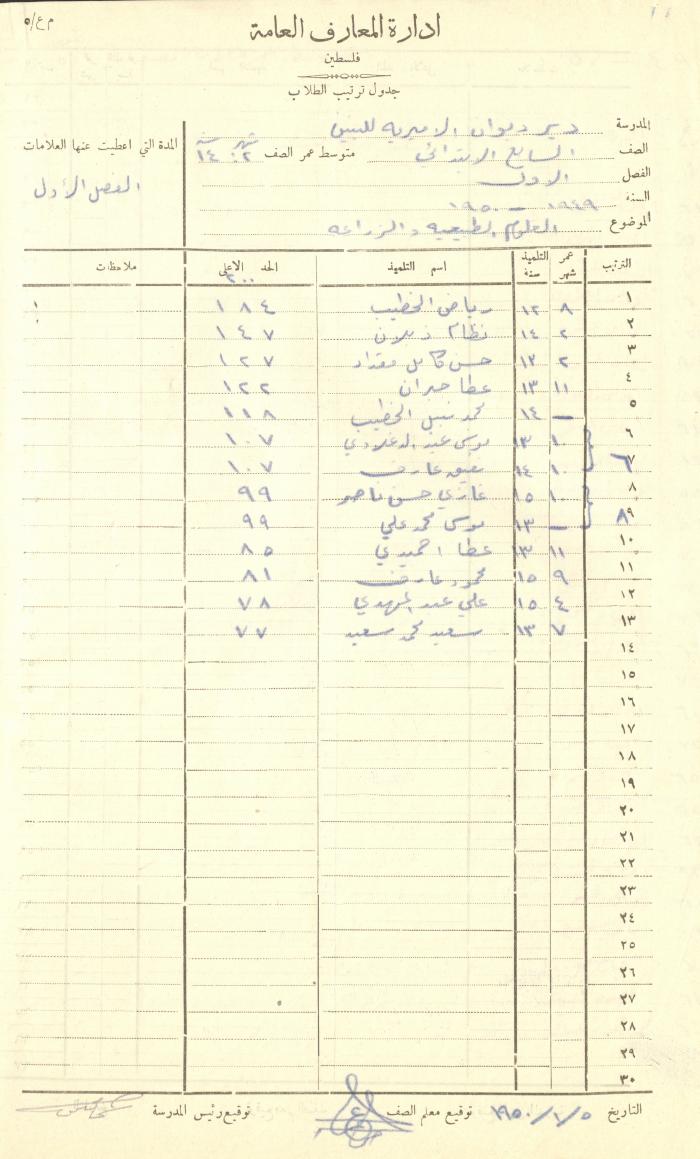 م ع/٥
ادارة المعارف العامة
فلسطين
جدول ترتيب الطلاب
المدرسة دير ديوان الاميرية للبنين
الصف السابع الابتدائي متوسط عمر الصف شهر ٢ سنة ١٤
الفصل الاول
السنة ١٩٤٩ - ١٩٥٠
الموضوع العلوم الطبيعيه والزراعه
المدة التي اعطيت عنها العلامات
الفصل الأول
الترتيب عمر التلميذ شهر سنة اسم التلميذ الحد الاعلى ٢٠٠ ملاحظات
١ ٨ ١٢ رياض الخطيب ١٨٤
٢ ٢ ١٤ نظام ١٤٧
٣ ٢ ١٣ حسن كامل مقداد ١٢٧
٤ ١١ ١٣ عطا جبران ١٢٢
٥ — ١٤ محمد نبيل الخطيب ١١٨
٦ ١٠ ١٣ موسى ١٠٧
٧ ٦ ١٠ ١٤ عارف ١٠٧
٨ ١٠ ١٥ غازي حسن ناصر ٩٩
٩ ٨ — ١٣ موسى محمد علي ٩٩
١٠ ١١ ١٣ عطا احميدي ٨٥
١١ ٩ ١٥ محمود عارف ٨١
١٢ ٤ ١٥ علي عبد المهدي ٧٨
١٣ ٧ ١٣ سعيد محمد سعيد ٧٧
١٤
١٥
١٦
١٧
١٨
١٩
٢٠
٢١
٢٢
٢٣
٢٤
٢٥
٢٦
٢٧
٢٨
٢٩
٣٠
التاريخ ٥/١/١٩٥٠ توقيع معلم الصف توقيع رئيس المدرسة